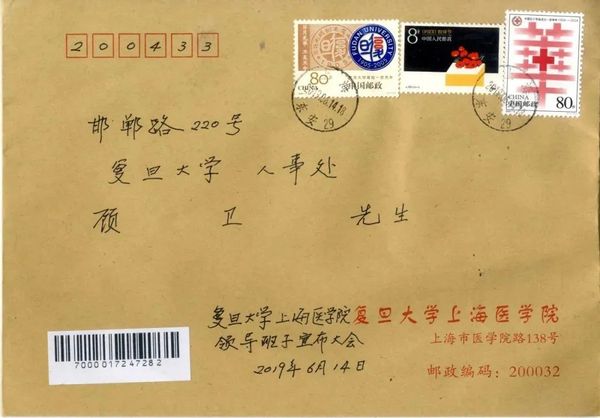 200433
FUDAN UNIVERSITY
1905-2005
80分
CHINA
中国邮政
8分
中国人民邮政
CHINA
中国邮政
80分
2019.06.14.18
东安
29
东安
29
邯郸路220号
复旦大学 人事处
顾 卫 先生
复旦大学上海医学院
领导班子宣布大会
2019年6月14日
复旦大学上海医学院
上海市医学院路138号
邮政编码：200032
7000017247282